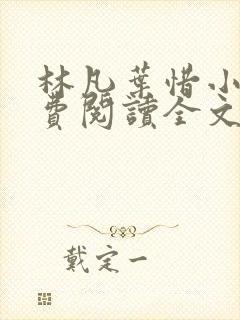 林凡葉惜小
費閱讀全文
戴定一